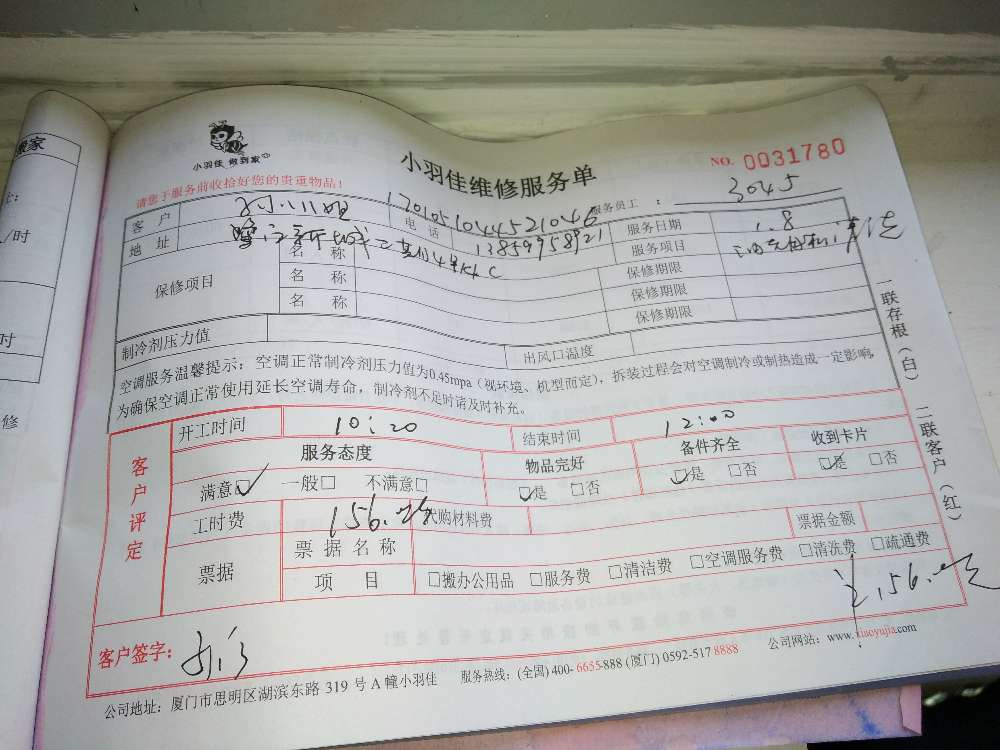 小羽佳 做到家
小羽佳维修服务单
NO. 0031780
请您于服务前收拾好您的贵重物品!
服务员工 : 3045
客 户 小姐 电 话 13859958921 服务日期 1.8
地 址 服务项目 清洗
保修项目 名 称 保修期限
名 称 保修期限
名 称 保修期限
制冷剂压力值 出风口温度
空调服务温馨提示:空调正常制冷剂压力值为0.45mpa(视环境、机型而定),拆装过程会对空调制冷或制热造成一定影响,
为确保空调正常使用延长空调寿命,制冷剂不足时请及时补充。
一联存根(白) 二联客户(红)
客户评定
开工时间 10:20 结束时间 12:00
服务态度 物品完好 备件齐全 收到卡片
满意☑ 一般□ 不满意□ ☑是 □否 ☑是 □否 ☑是 □否
工时费 156. 代购材料费
票据 票据名称 票据金额
项 目 □搬办公用品 □服务费 □清洁费 □空调服务费 □清洗费 □疏通费
156.
客户签字:
公司地址:厦门市思明区湖滨东路 319 号 A 幢小羽佳 服务热线:(全国) 400- 6655-888 (厦门) 0592-517 8888 公司网站:www.xiaoyujia.com
家
/时
时
修